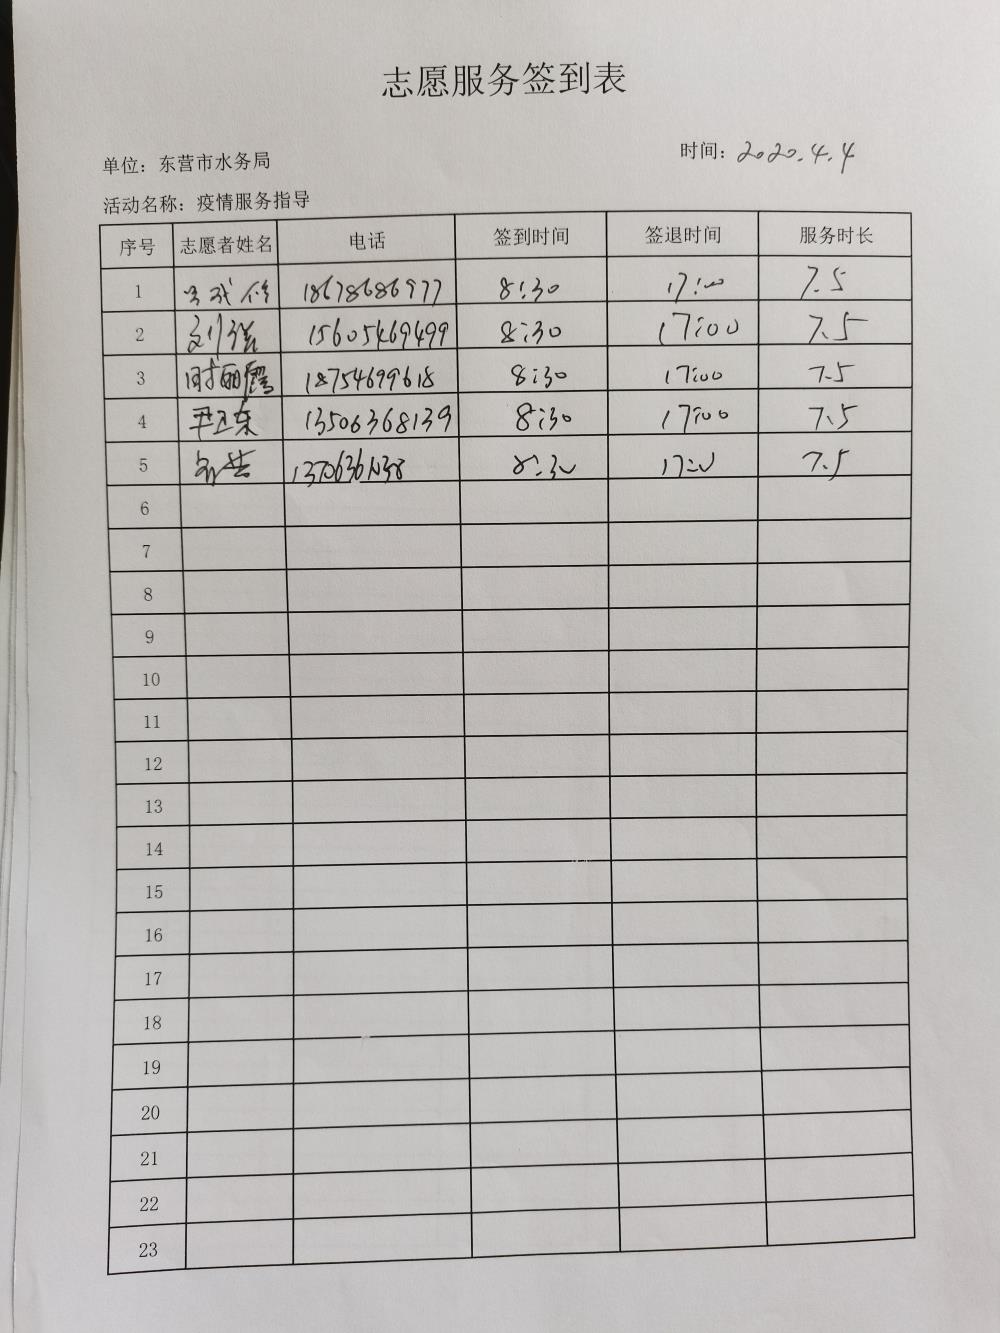 志愿服务签到表
单位：东营市水务局 时间：2020.4.4
活动名称：疫情服务指导
序号 志愿者姓名 电话 签到时间 签退时间 服务时长
1 18678686977 8:30 17:00 7.5
2 刘强 15605469499 8:30 17:00 7.5
3 时丽霞 18754699618 8:30 17:00 7.5
4 尹卫东 13506368139 8:30 17:00 7.5
5 8:30 17:00 7.5
6
7
8
9
10
11
12
13
14
15
16
17
18
19
20
21
22
23